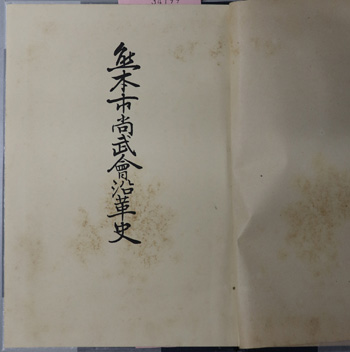 熊本市尚武會沿革史